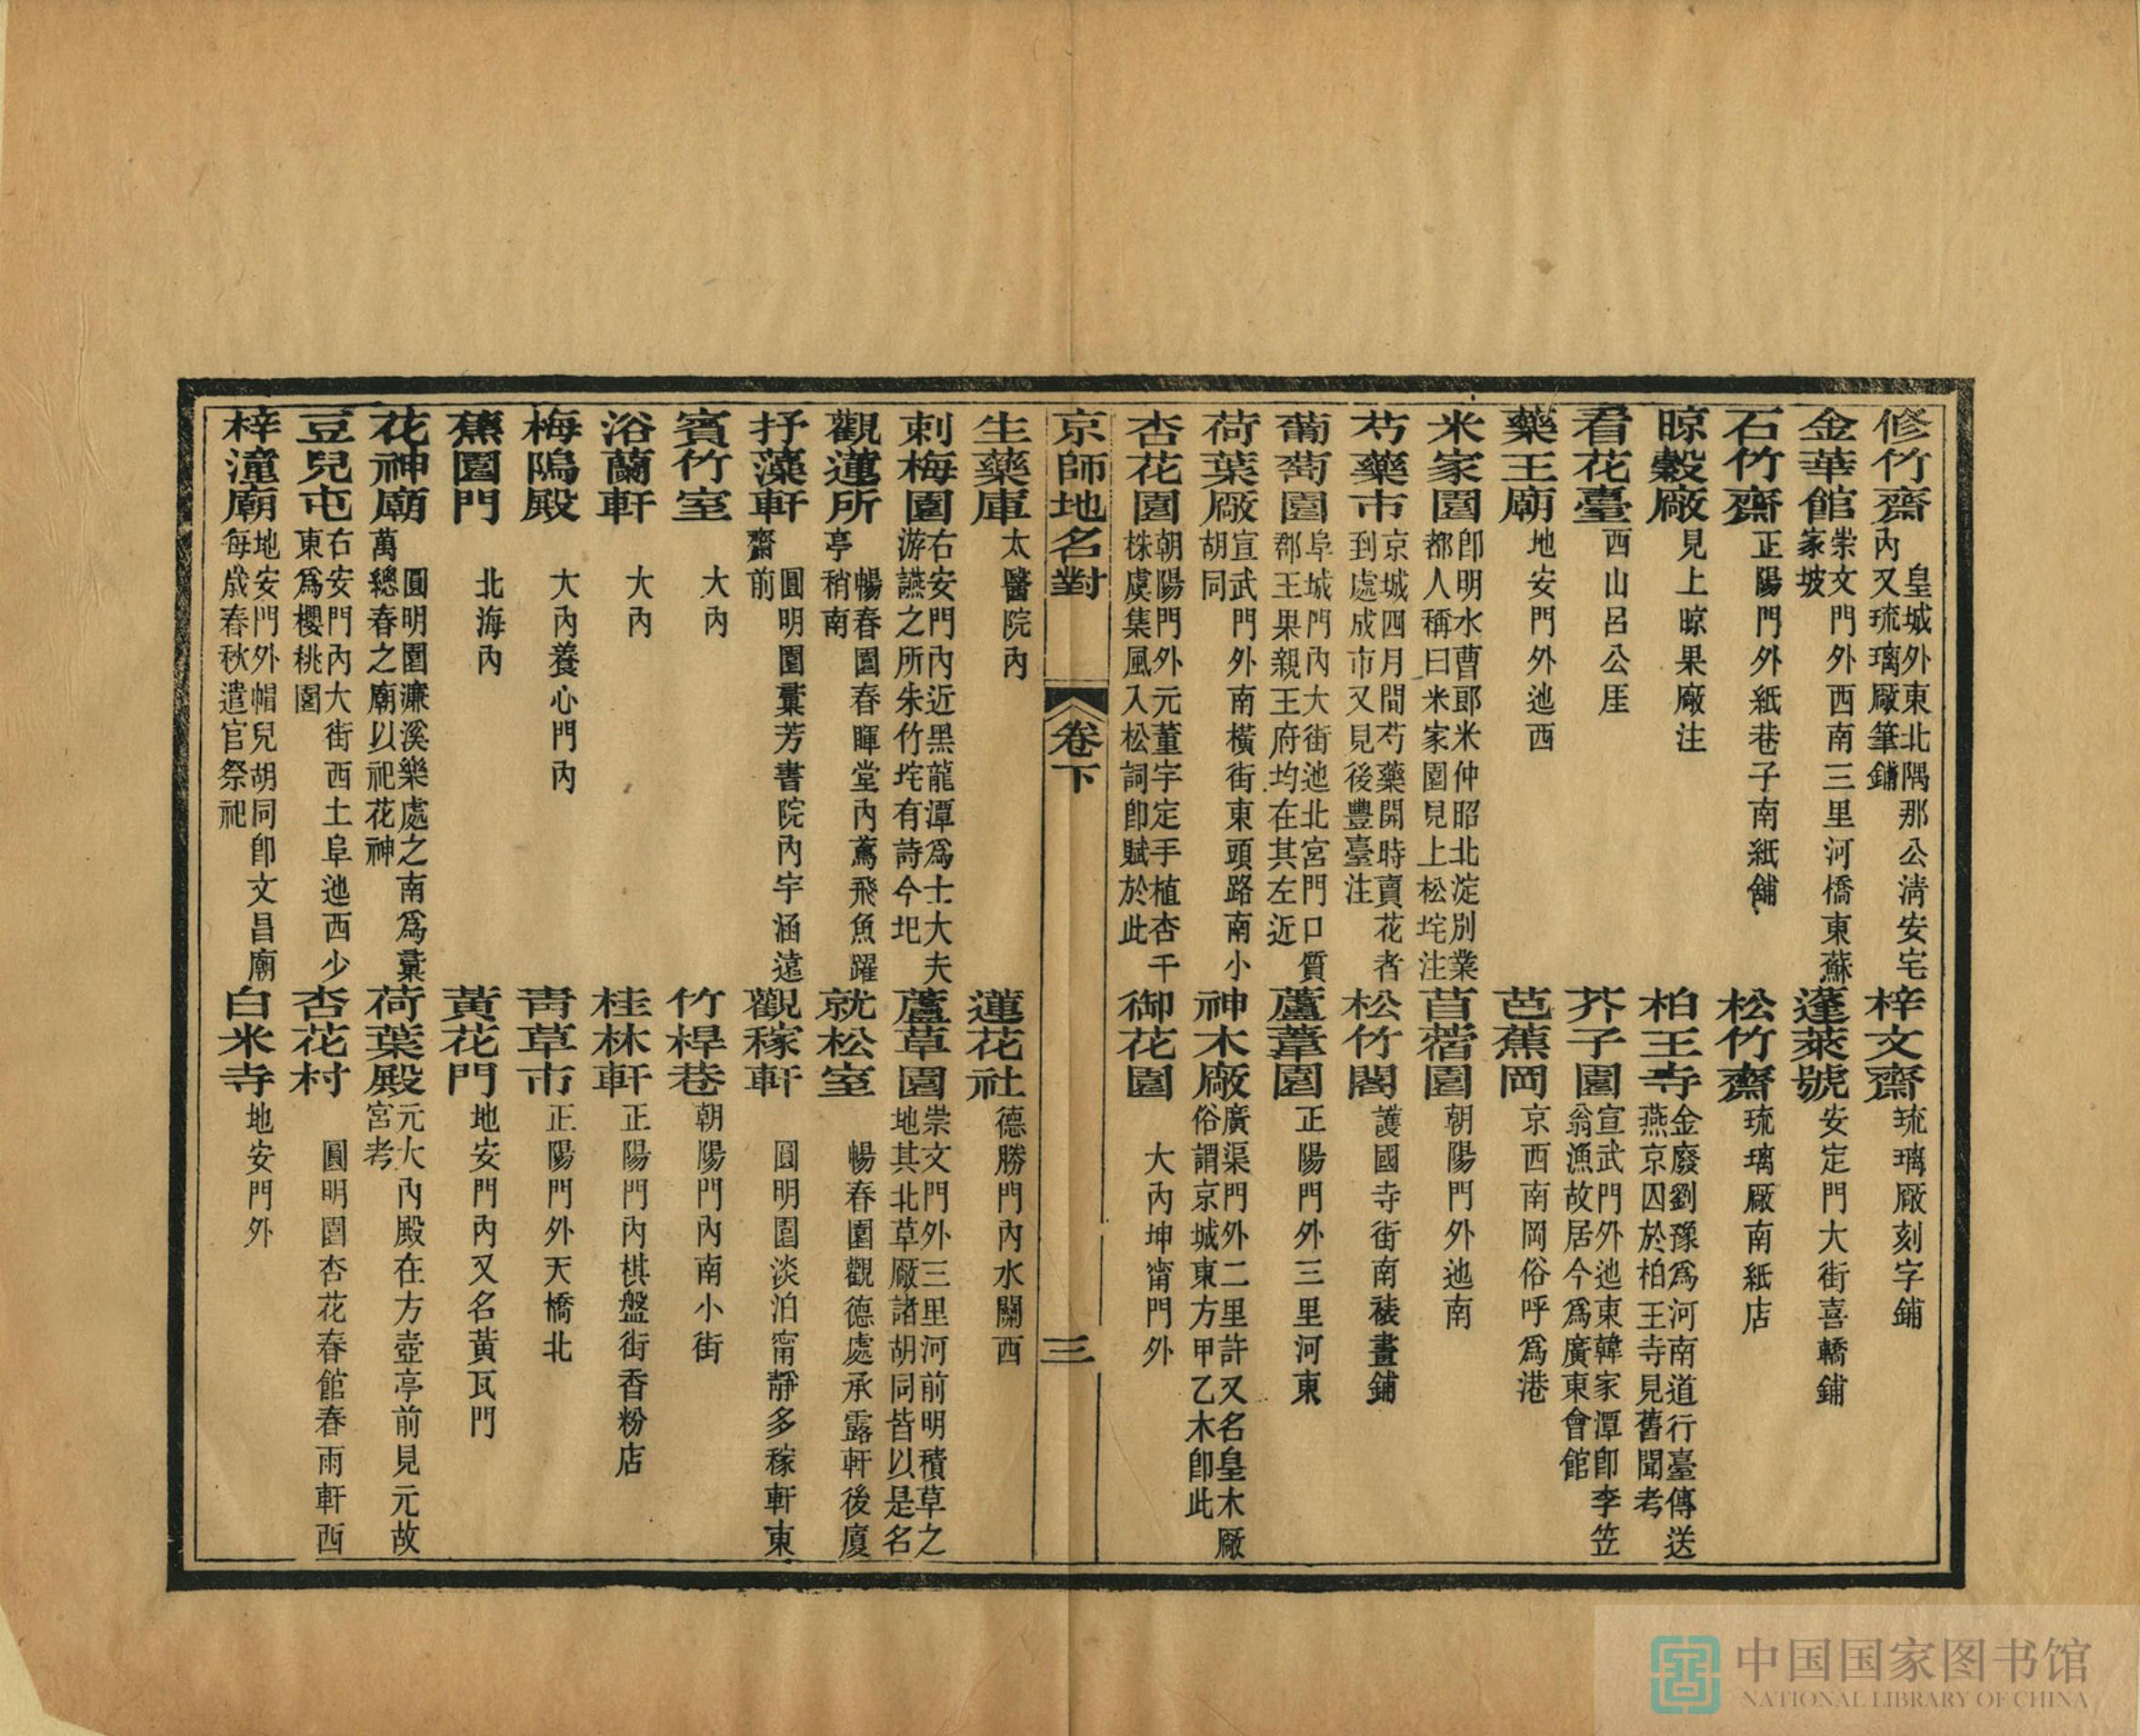 修竹齋 皇城外東北隅那公淸安宅內又琉璃廠筆鋪 梓文齋 琉璃廠刻字鋪
金華館 崇文門外西南三里河橋東蘇家坡 蓬萊號 安定門大街喜轎鋪
石竹齋 正陽門外紙巷子南紙鋪 松竹齋 琉璃廠南紙店
晾穀廠 見上晾果廠注 柏王寺 金廢劉豫爲河南道行臺傳送燕京囚於柏王寺見舊聞考
看花臺 西山呂公厓 芥子園 宣武門外迆東韓家潭卽李笠翁漁故居今爲廣東會館
藥王廟 地安門外迆西 芭蕉岡 京西南岡俗呼爲港
米家園 卽明水曹郎米仲昭北淀別業都人稱曰米家園見上松垞注 苜蓿園 朝陽門外迆南
芍藥市 京城四月間芍藥開時賣花者到處成市又見後豐臺注 松竹閣 護國寺街南裱畫鋪
葡萄園 阜城門內大街迆北宮門口質郡王果親王府均在其左近 蘆葦園 正陽門外三里河東
荷葉廠 宣武門外南橫街東頭路南小胡同 神木廠 廣渠門外二里許又名皇木廠俗謂京城東方甲乙木卽此
杏花園 朝陽門外元董宇定手植杏千株虞集風入松詞卽賦於此 御花園 大內坤甯門外
京師地名對 卷下 三
生藥庫 太醫院內 蓮花社 德勝門內水關西
刺梅園 右安門內近黑龍潭爲士大夫游讌之所朱竹垞有詩今圯 蘆草園 崇文門外三里河前明積草之地其北草廠諸胡同皆以是名
觀蓮所 暢春園春暉堂內鳶飛魚躍亭稍南 就松室 暢春園觀德處承露軒後廈
抒藻軒 圓明園彙芳書院內宇涵遠齋前 觀稼軒 圓明園淡泊甯靜多稼軒東
賓竹室 大內 竹桿巷 朝陽門內南小街
浴蘭軒 大內 桂林軒 正陽門內棋盤街香粉店
梅隖殿 大內養心門內 靑草市 正陽門外天橋北
蕉園門 北海內 黃花門 地安門內又名黃瓦門
花神廟 圓明園濂溪樂處之南爲彙萬總春之廟以祀花神 荷葉殿 元大內殿在方壺亭前見元故宮考
豆兒屯 右安門內大街西土阜迆西少東爲櫻桃園 杏花村 圓明園杏花春館春雨軒西
梓潼廟 地安門外帽兒胡同卽文昌廟每歲春秋遣官祭祀 白米寺 地安門外
中国国家图书馆
NATIONAL LIBRARY OF CHINA